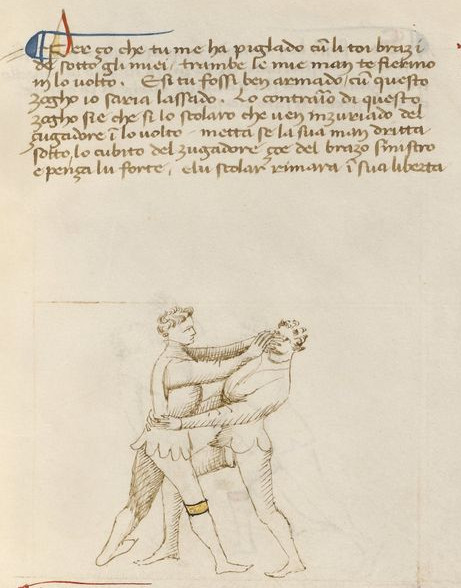 Per ço che tu me ha pigliado cũ li toi brazi
de sotto gli miei, trambe le mie man te fierino
in lo volto. E si tu fossi ben armado, cũ questo
zogho io saria lassado. Lo contraĩo di questo
zogho sie che si lo scolaro che uen inzuriado del
çugadore ĩ lo volto metta se la sua man dritta
sotto lo cubito del zugadore çoe del brazo sinistro
e penza lu forte, elu scolar rimara ĩ sua liberta